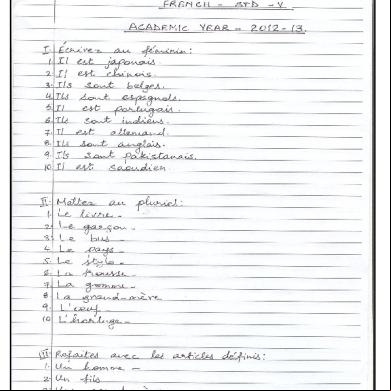 FRENCH - STD - V
ACADEMIC YEAR - 2012-13.
I. Écrivez au féminin:
1. Il est japonais.
2. Il est chinois.
3. Ils sont belges.
4. Ils sont espagnols.
5. Il est portugais.
6. Ils sont indiens.
7. Il est allemand.
8. Ils sont anglais.
9. Ils sont pakistanais.
10. Il est saoudien.
II. Mettez au pluriel:
1. Le livre -
2. Le garçon -
3. Le bus -
4. Le pays -
5. Le stylo -
6. La trousse -
7. La gomme -
8. La grand-mère
9. L'oeuf -
10. L'horloge -
III. Refaites avec les articles définis:
1. Un homme -
2. Un fils